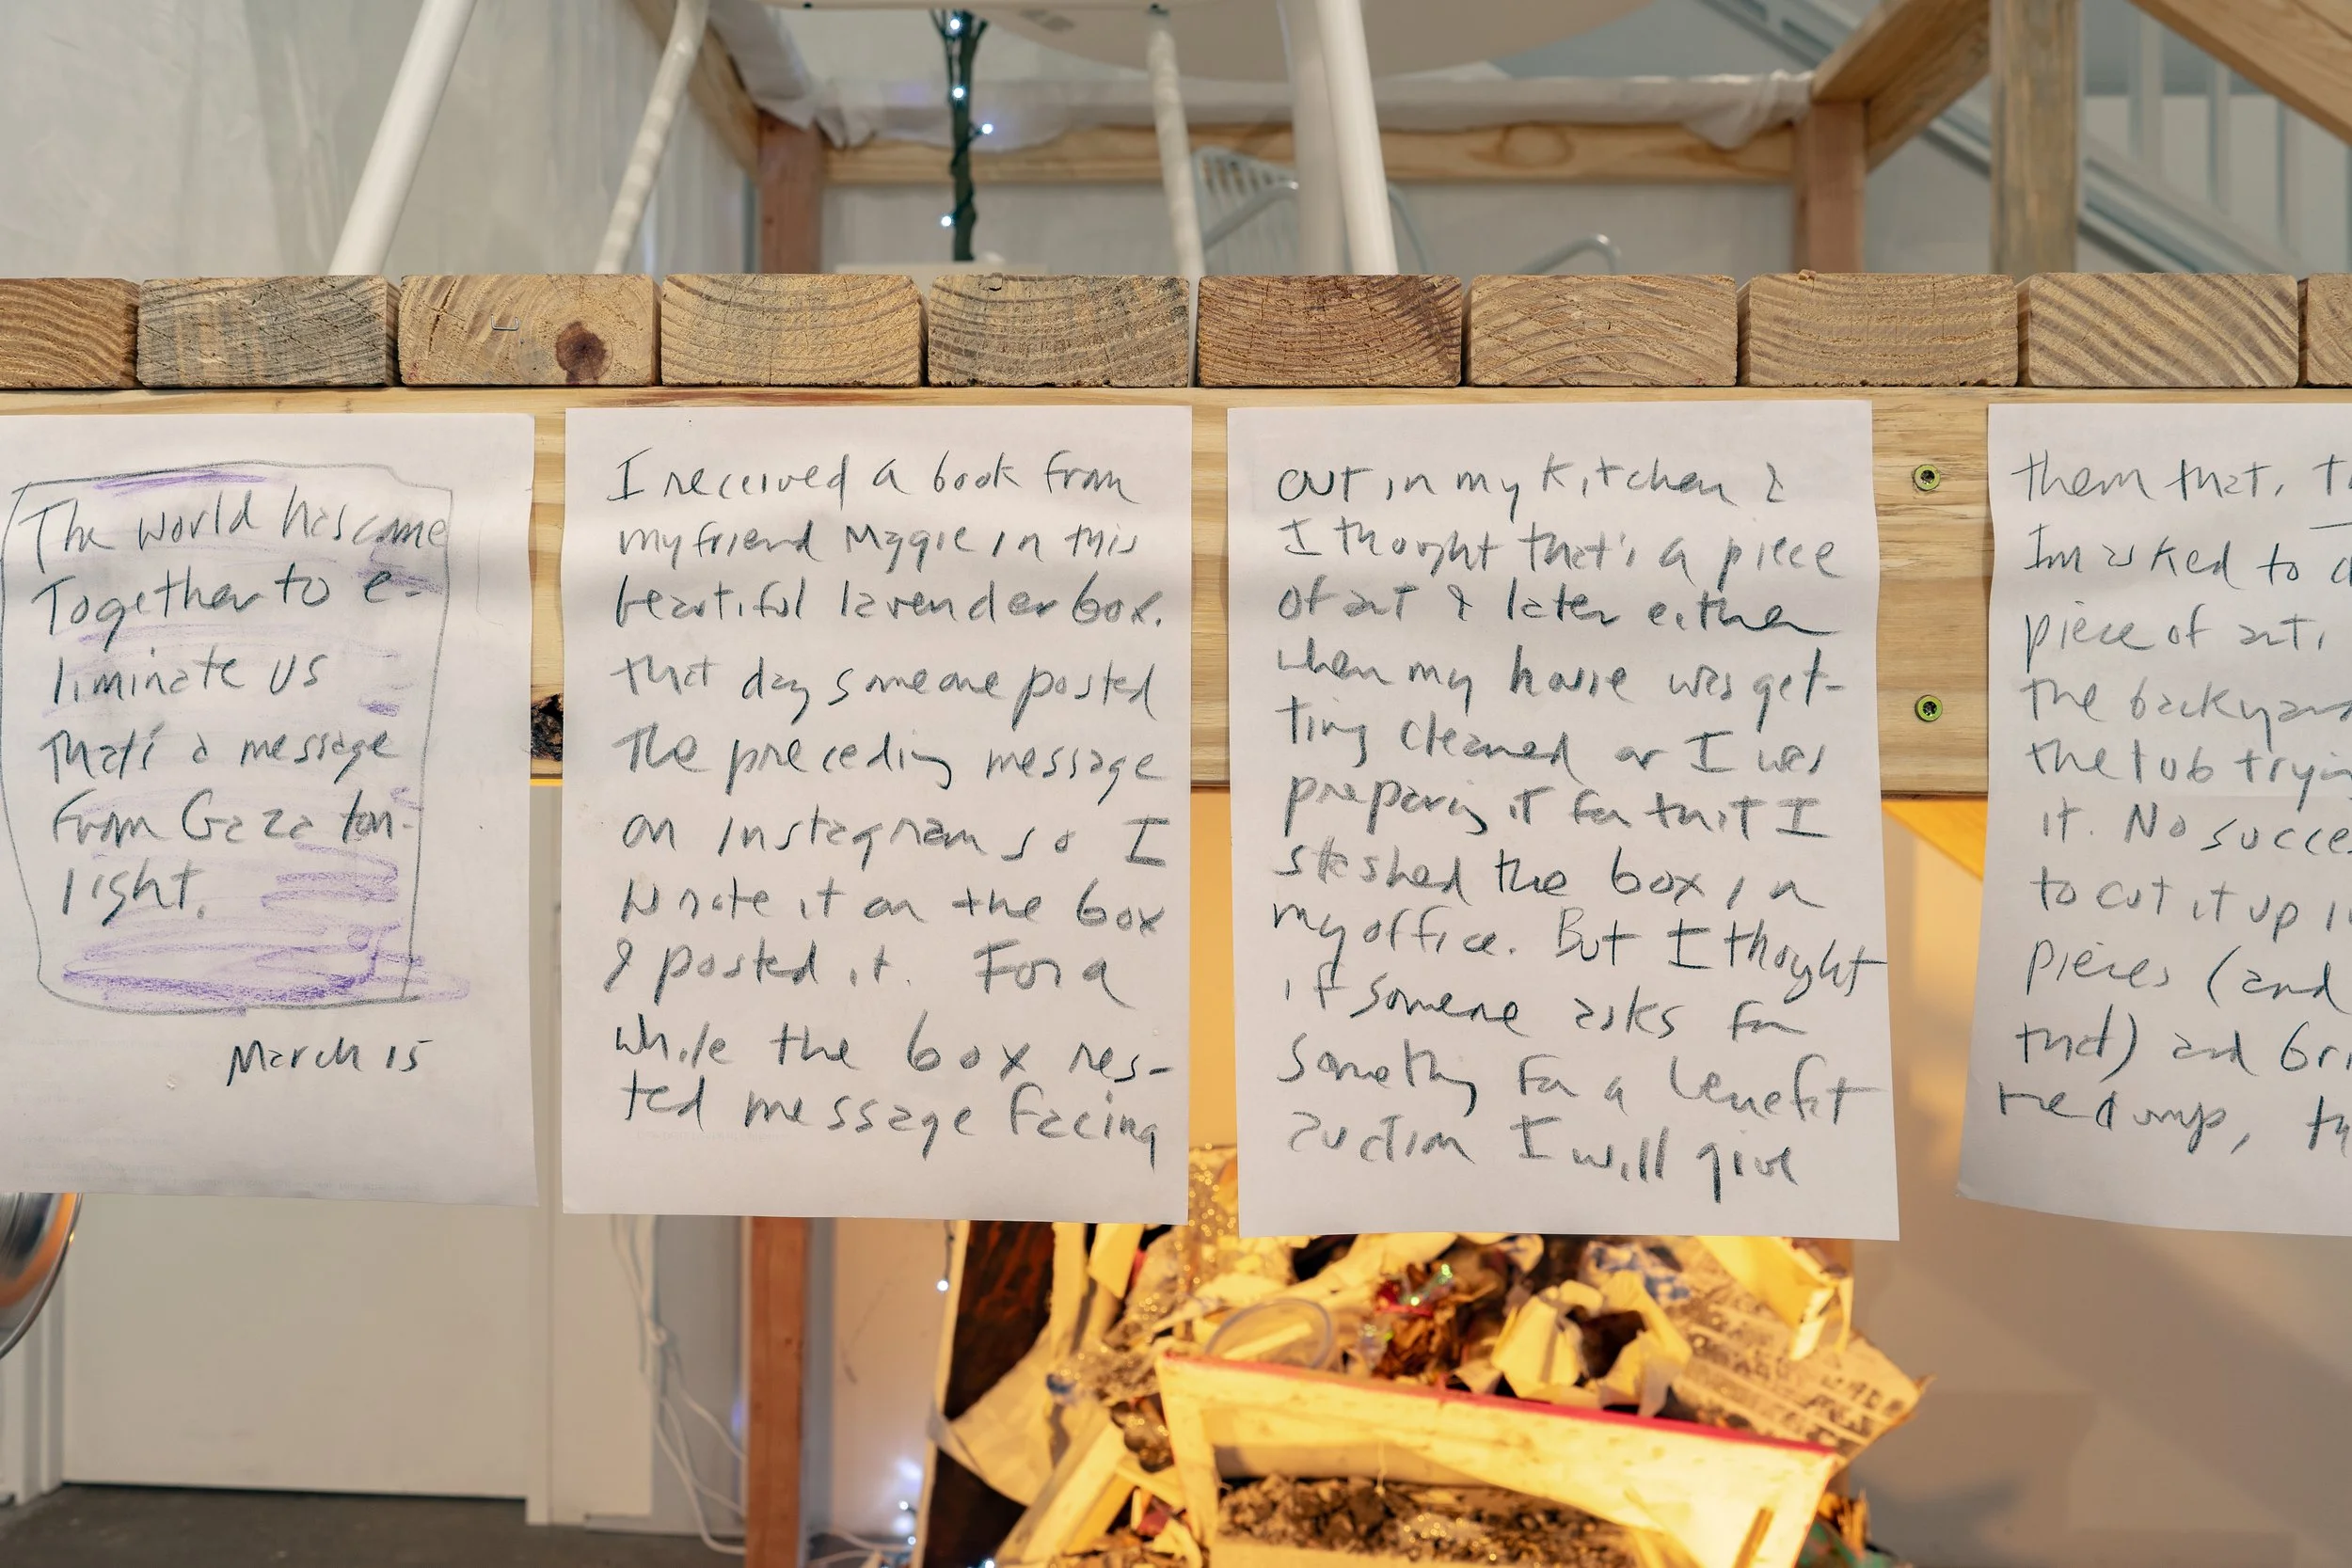 The world has come
Together to e-
liminate us
that's a message
from Gaza ton-
light.
March 15
I received a book from
my friend Maggie in this
beautiful lavender box.
that day someone posted
the preceding message
on Instagram so I
wrote it on the box
& posted it. For a
while the box res-
ted message facing
out in my kitchen &
I thought that's a piece
of art & later either
when my house was get-
ting cleaned or I was
preparing it for that I
stashed the box in
my office. But I thought
if someone asks for
something for a benefit
auction I will give
them that.
I'm asked to
piece of art,
the backyard
the tub
it. No
to cut it up
pieces (and
that) and
the dump,